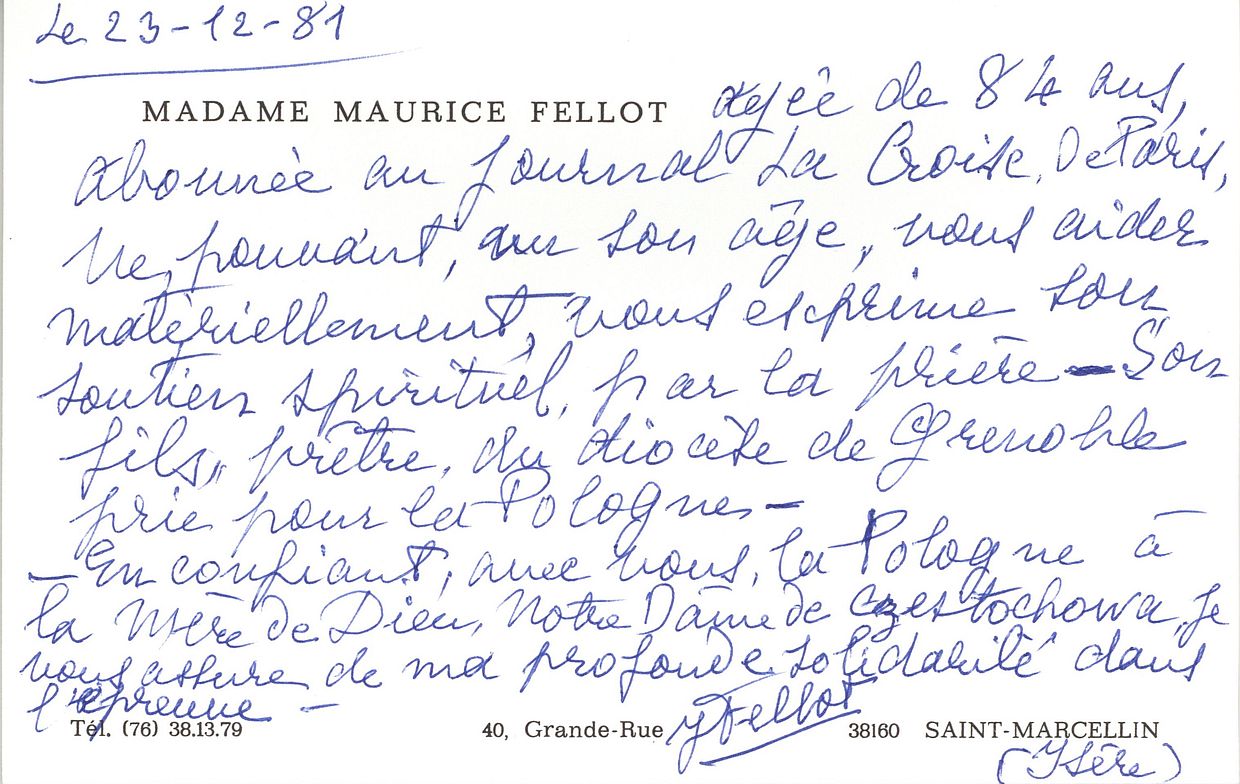 Le 23-12-81
MADAME MAURICE FELLOT âgée de 84 ans,
abonnée au journal La Croix, De Paris,
Ne, pouvant, vu son âge, vous aider
matériellement, vous exprime son
soutien spirituel, par la prière - Son
fils, prêtre, du diocèse de Grenoble
prie pour la Pologne -
- En confiant, avec vous, la Pologne à
la Mère de Dieu, Notre Dame de Czestochowa, je
vous assure de ma profonde solidarité dans
l'épreuve -
YFellot
Tél. (76) 38.13.79 40, Grande-Rue 38160 SAINT-MARCELLIN
(Isère)